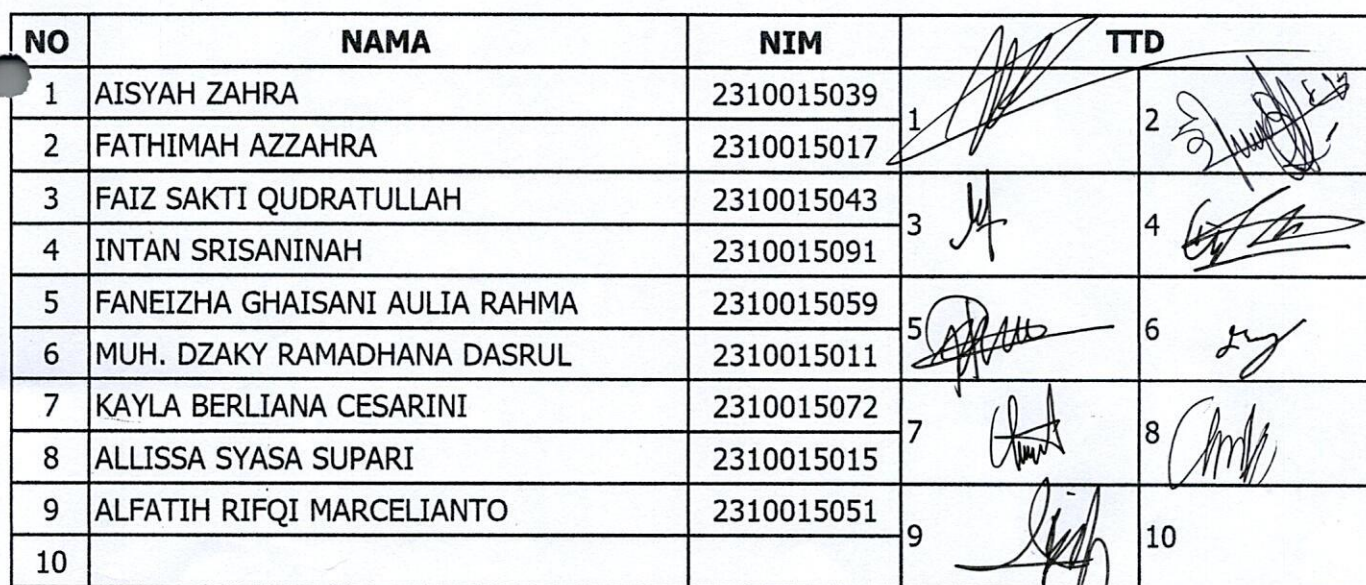 NO NAMA NIM TTD
1 AISYAH ZAHRA 2310015039 1
2 FATHIMAH AZZAHRA 2310015017 2
3 FAIZ SAKTI QUDRATULLAH 2310015043 3
4 INTAN SRISANINAH 2310015091 4
5 FANEIZHA GHAISANI AULIA RAHMA 2310015059 5
6 MUH. DZAKY RAMADHANA DASRUL 2310015011 6
7 KAYLA BERLIANA CESARINI 2310015072 7
8 ALLISSA SYASA SUPARI 2310015015 8
9 ALFATIH RIFQI MARCELIANTO 2310015051 9
10 10